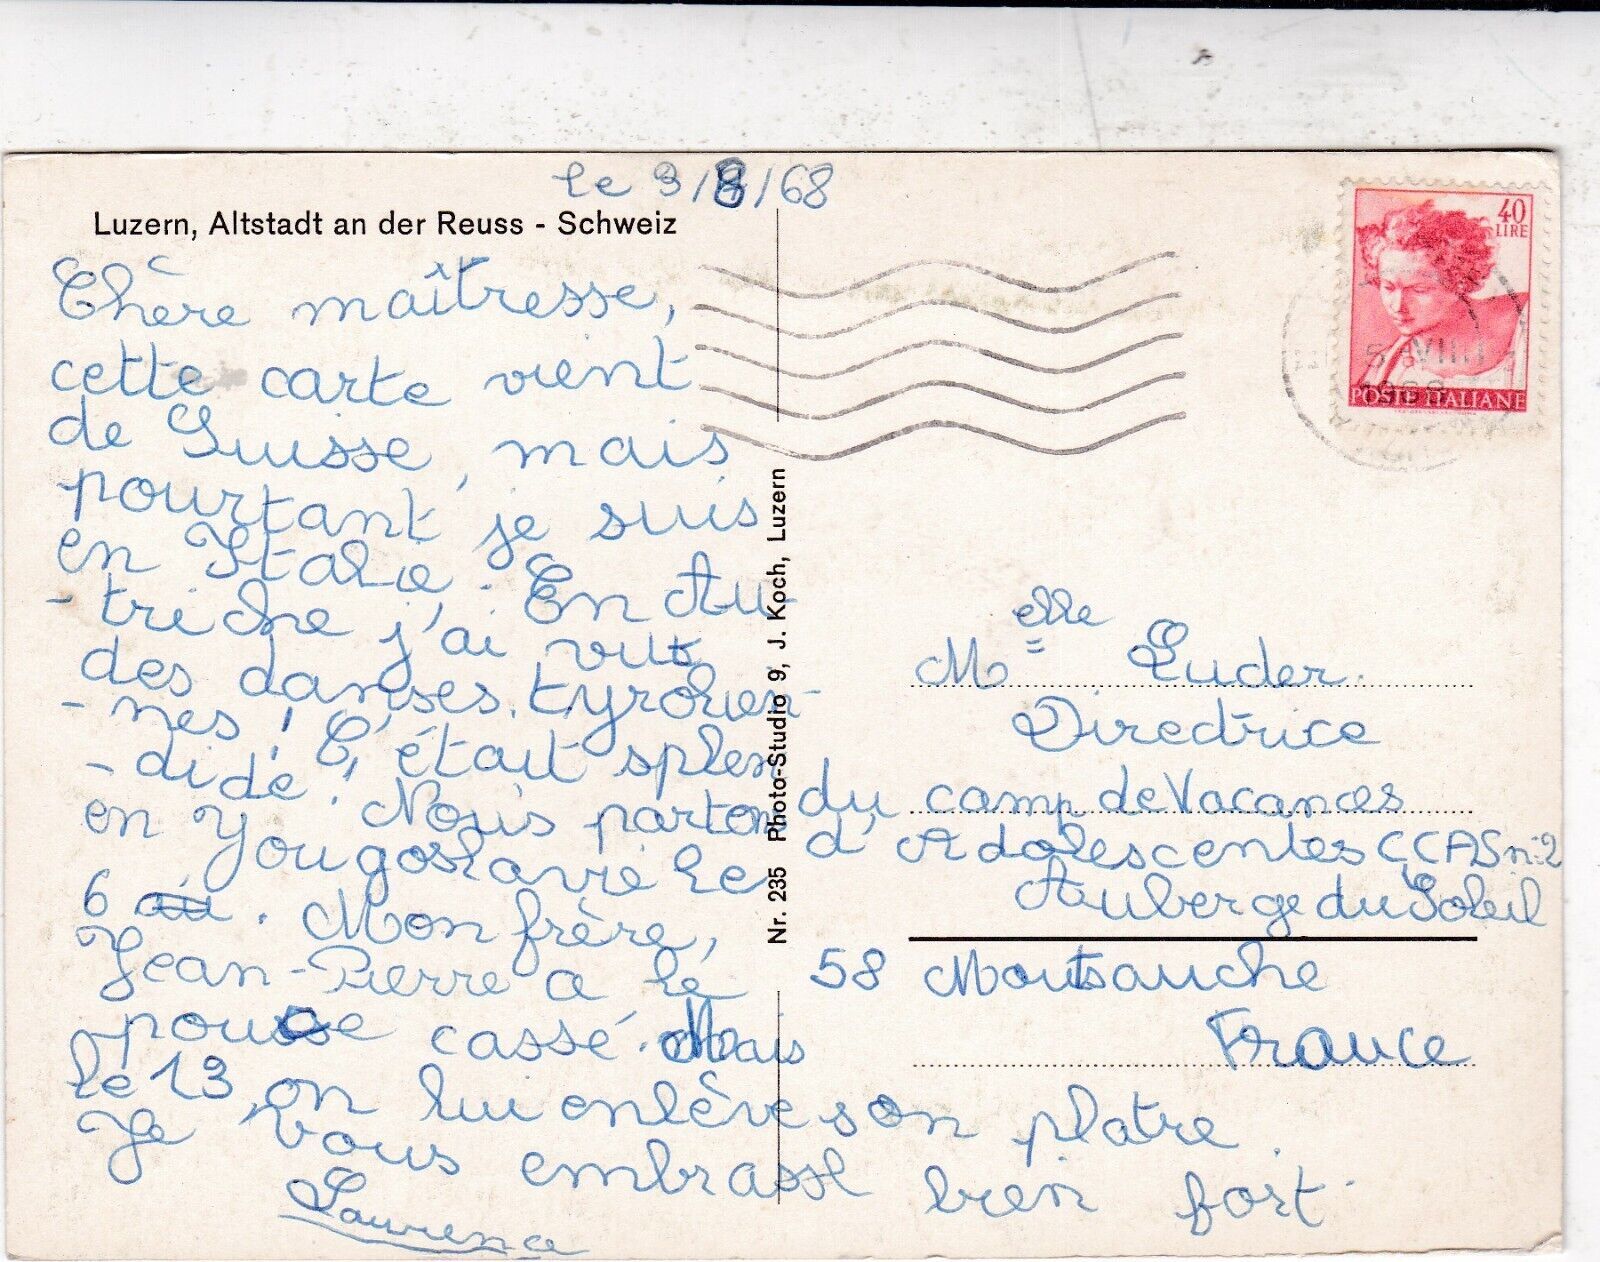 le 3/8/68
Luzern, Altstadt an der Reuss - Schweiz
Chère maîtresse,
cette carte vient
de Suisse, mais
pourtant je suis
en Italie. En Au-
-triche j'ai vu
des danses tyrolien-
-nes ! C'était splen
-dide. Nous parton
en Yougoslavie le
6. Mon frère,
Jean-Pierre a le
pouce cassé. Mais
le 13, on lui enlève son platre.
Je vous embrasse bien fort.
Laurence
Nr. 235 Photo-Studio 9, J. Koch, Luzern
40
LIRE
POSTE ITALIANE
5 VIII
1968
Melle Luder.
Directrice
du camp de Vacances
d'Adolescentes CCAS n:2
Auberge du Soleil
58 Montsauche
France